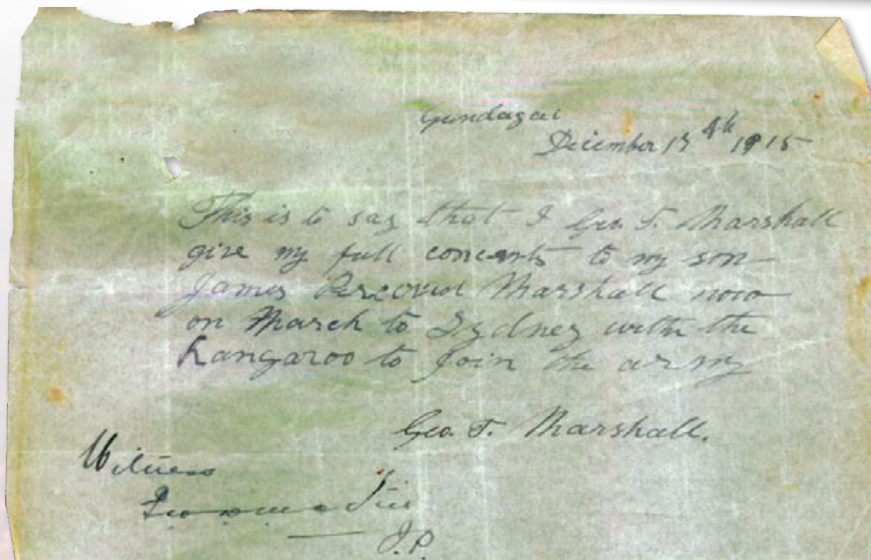 Gundagai
December 17th 1915
This is to say that I Geo. T. Marshall
give my full concents to my son
James Percival Marshall now
on March to Sydney with the
Kangaroo to join the army
Geo. T. Marshall.
Witness
J.P.